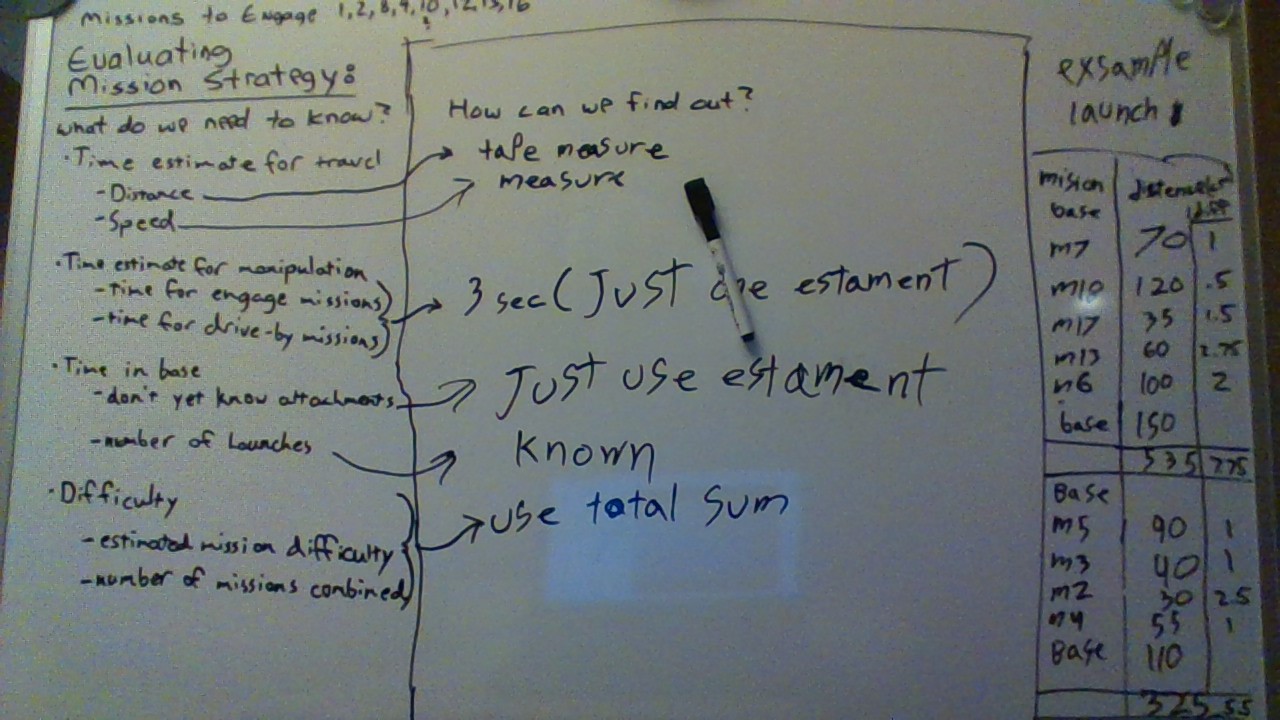 Missions to Engage 1,2,8,9,10,12,13,16
Evaluating
Mission Strategy:
What do we need to know?
·Time estimate for travel
-Distance
-Speed
·Time estimate for manipulation
-time for engage missions
-time for drive-by missions
·Time in base
-don't yet know attachments
-number of Launches
·Difficulty
-estimated mission difficulty
-number of missions combined
How can we find out?
tape measure
measure
3 sec (Just one estament)
Just use estament
Known
use total sum
exsample
launch
mision
base
m7 70 1
m10 120 .5
m17 35 1.5
m13 60 2.75
m6 100 2
base 150
535 7.75
Base
m5 90 1
m3 40 1
m2 30 2.5
m4 55 1
Base 110
325 5.5